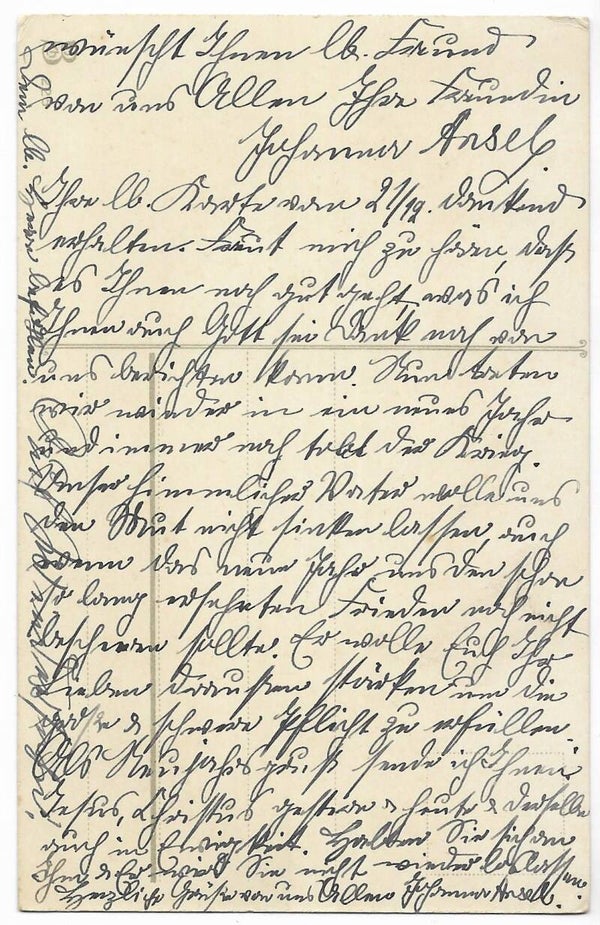 wünscht Ihnen lb. Freund
von uns Allen Ihre Freundin
Johanna Ansel.
Ihre lb. Karte vom 21/12. dankend
erhalten. Freut mich zu hören, daß
es Ihnen noch gut geht, was ich
Ihnen auch Gott sei Dank noch von
uns berichten kann. Nun treten
wir wieder in ein neues Jahr
und immer noch tobt der Krieg.
Unser himmlischer Vater wolle uns
den Mut nicht sinken lassen, auch
wenn das neue Jahr uns den schon
so lang ersehnten Frieden noch nicht
bescheren sollte. Er wolle Euch Ihr
Lieben draußen stärken um die
& schwere Pflicht zu erfüllen.
Als Neujahrsgruß sende ich Ihnen:
Jesus, Christus gestern & heute & derselbe
auch in Ewigkeit. Halten Sie sich an
Ihm & Er wird Sie nicht wieder loslassen.
Herzliche Grüße von uns Allen Johanna Ansel.
Dem lb. Herrn befohlen!